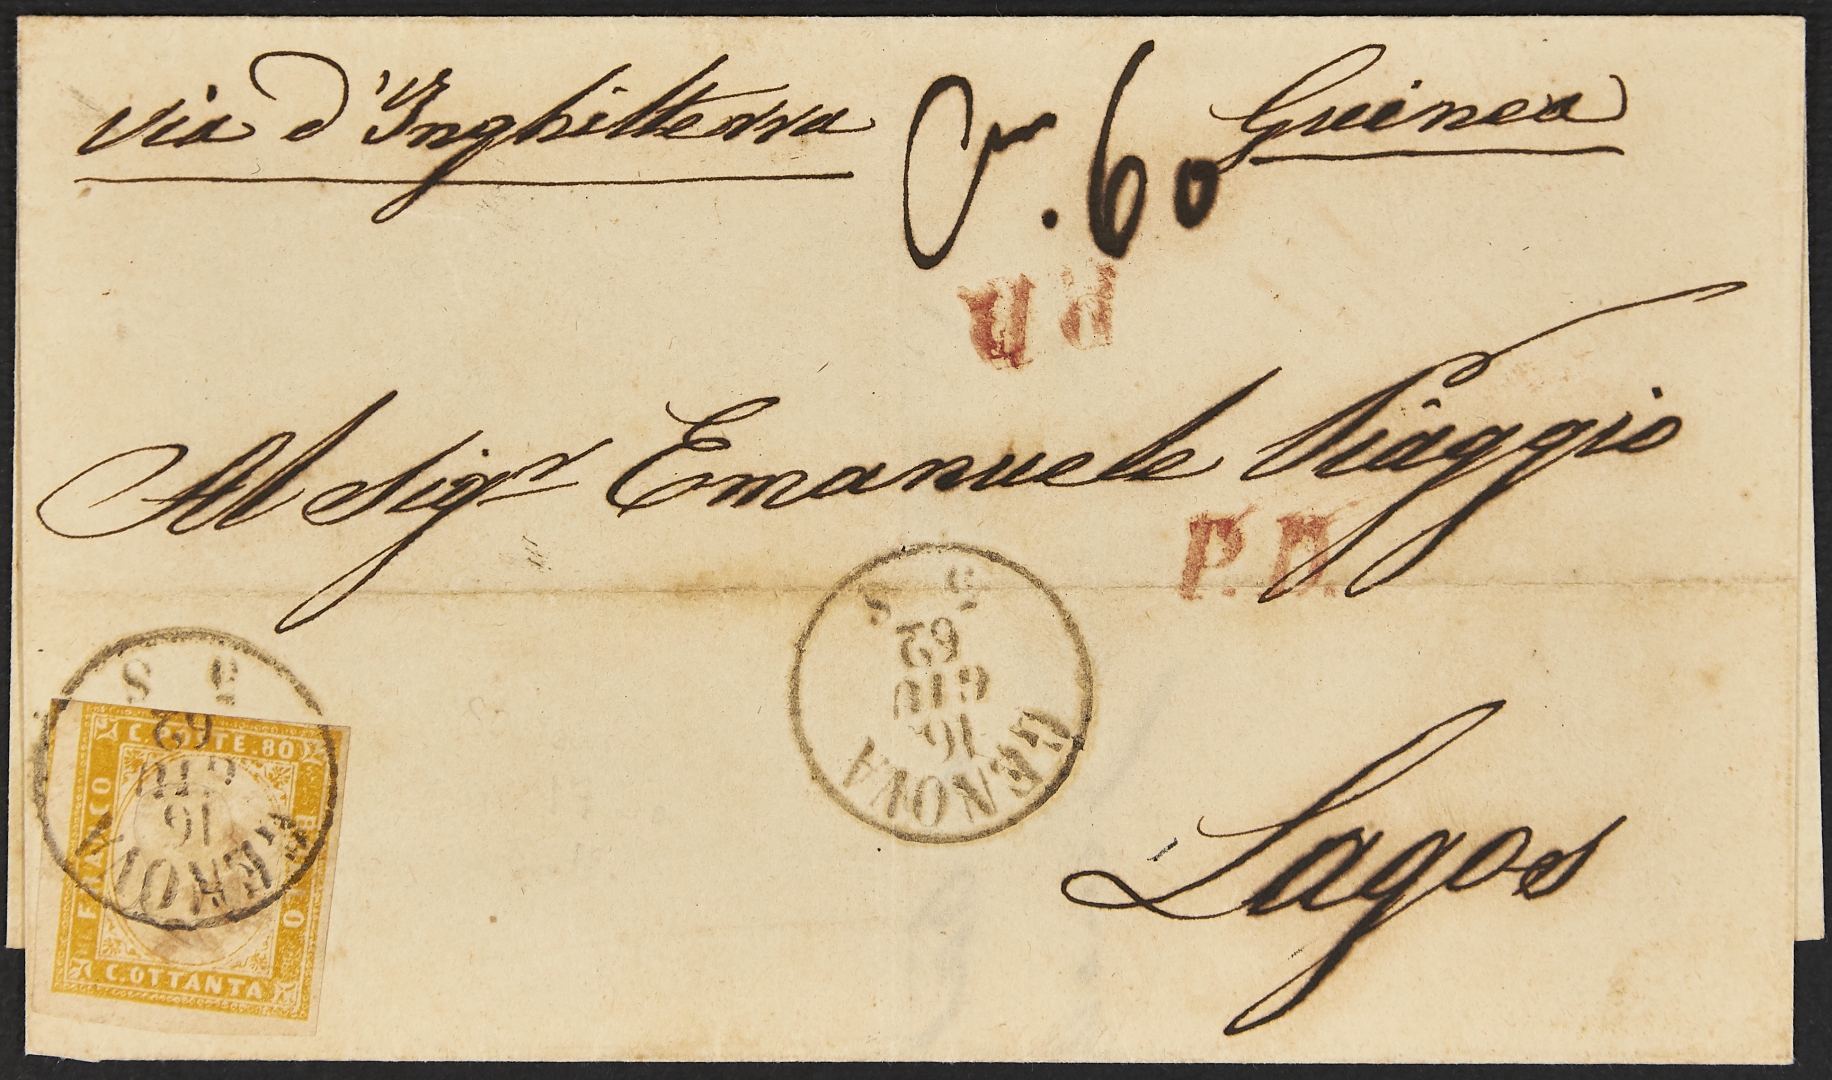 via d'Inghilterra
Cmi. 60
Guinea
P.D.
Al Sigr. Emanuele Viaggio
P.D.
GENOVA
16
GIU
62
5 S
C. POSTE. 80
FRANCO
BOLLO
C. OTTANTA
GENOVA
16
GIU
62
5 S
Lagos